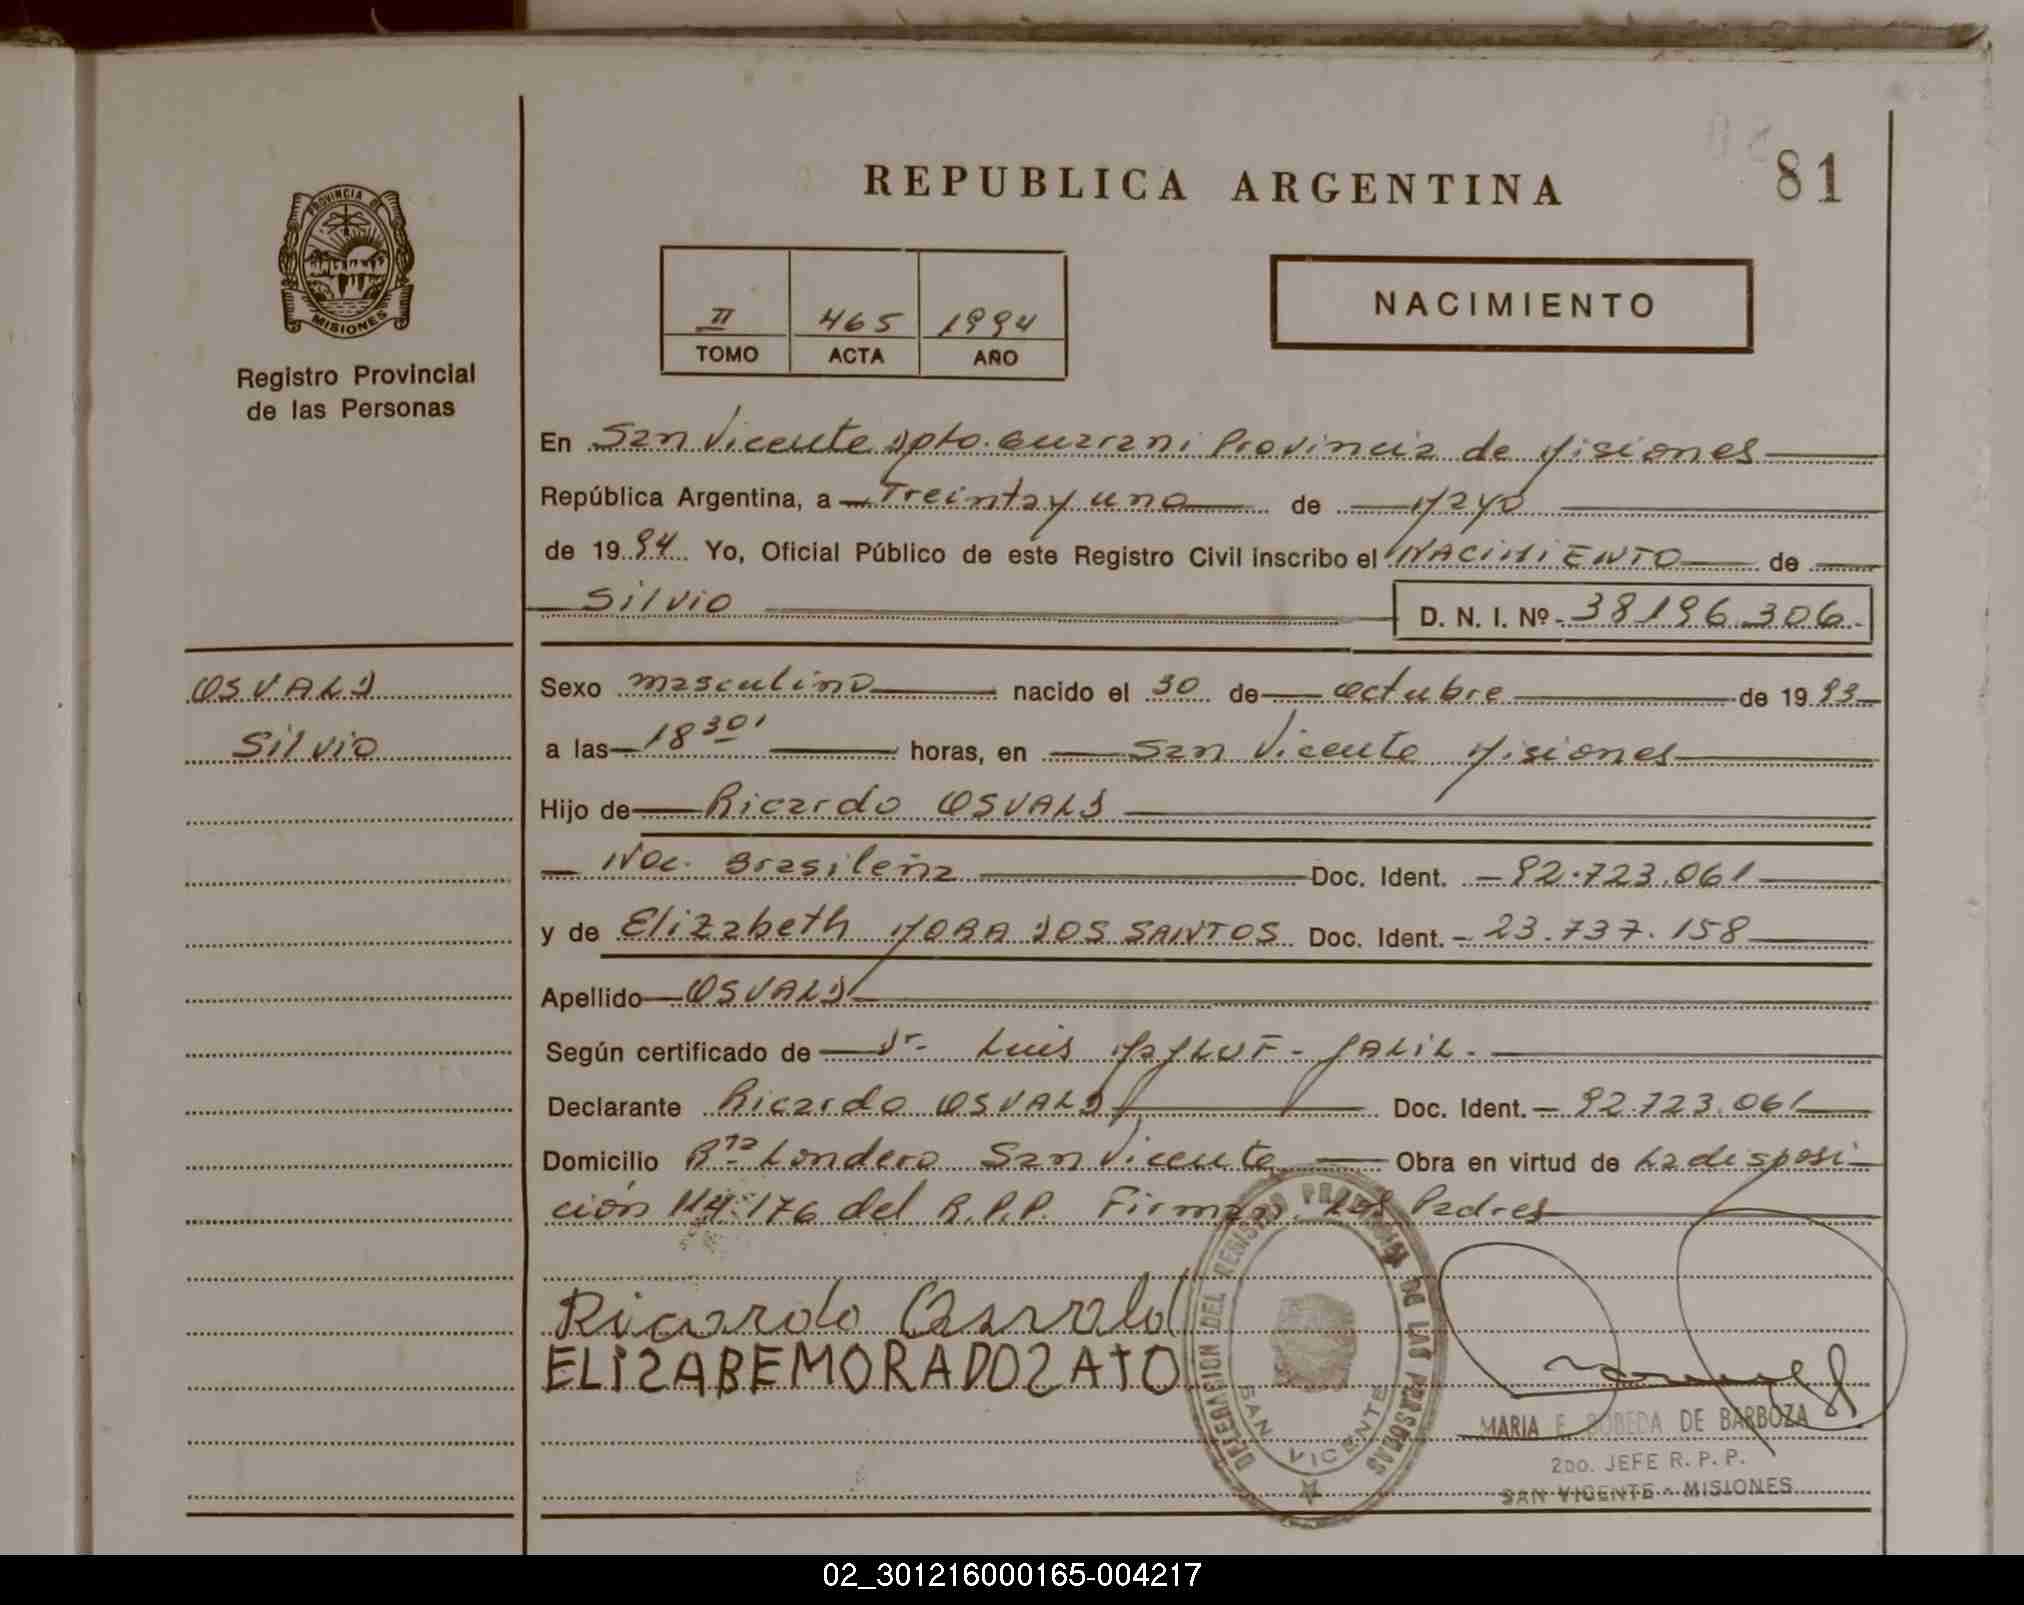 81
REPUBLICA ARGENTINA
PROVINCIA DE
MISIONES
Registro Provincial
de las Personas
II 465 1994
TOMO ACTA AÑO
NACIMIENTO
En San Vicente Dpto. Guarani Provincia de Misiones
República Argentina, a Treinta y uno de Mayo
de 1994 Yo, Oficial Público de este Registro Civil inscribo el NACIMIENTO de
Silvio D. N. I. Nº 38196.306
OSVALD
Silvio
Sexo masculino nacido el 30 de octubre de 1993
a las 18 30' horas, en San Vicente Misiones
Hijo de Ricardo OSVALD
Nac. Brasileña Doc. Ident. 92.723.061
y de Elizabeth MORA DOS SANTOS Doc. Ident. 23.737.158
Apellido OSVALD
Según certificado de Dr. Luis JALIL
Declarante Ricardo OSVALD Doc. Ident. 92.723.061
Domicilio Londero San Vicente Obra en virtud de La disposi
ción 114.176 del R.P.P. Firman Los Padres
Ricardo Osvald
ELISABEMORADOSATO
DELEGACION DEL REGISTRO PROVINCIAL DE LAS PERSONAS
SAN VICENTE
MARIA E. BOBEDA DE BARBOZA
2DO. JEFE R. P. P.
SAN VICENTE - MISIONES
02_301216000165-004217